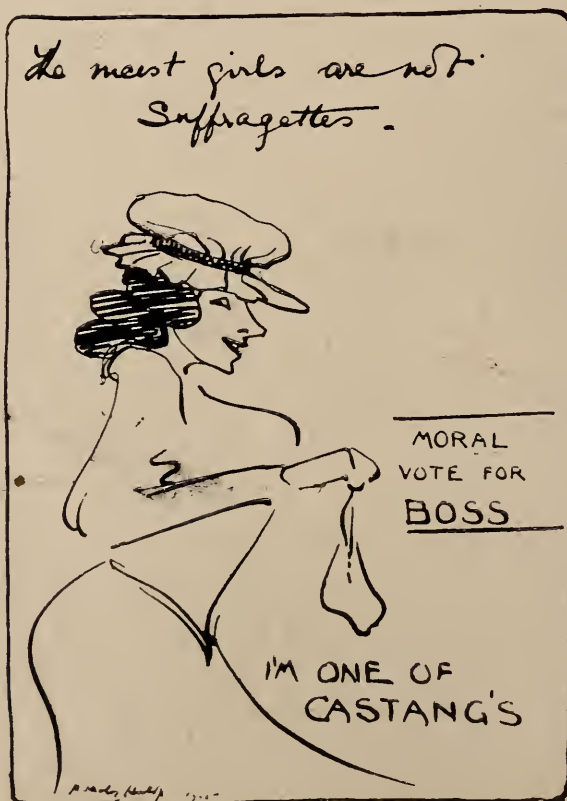 The meest girls are not
Suffragettes.
MORAL
VOTE FOR
BOSS
I'M ONE OF
CASTANG'S